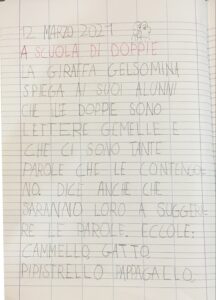 12 MARZO 2021
A SCUOLA DI DOPPIE
LA GIRAFFA GELSOMINA
SPIEGA AI SUOI ALUNNI
CHE LE DOPPIE SONO
LETTERE GEMELLE E
CHE CI SONO TANTE
PAROLE CHE LE CONTENGO
NO. DICE ANCHE CHE
SARANNO LORO A SUGGERI
RE LE PAROLE. ECCOLE:
CAMMELLO, GATTO,
PIPISTRELLO PAPPAGALLO.